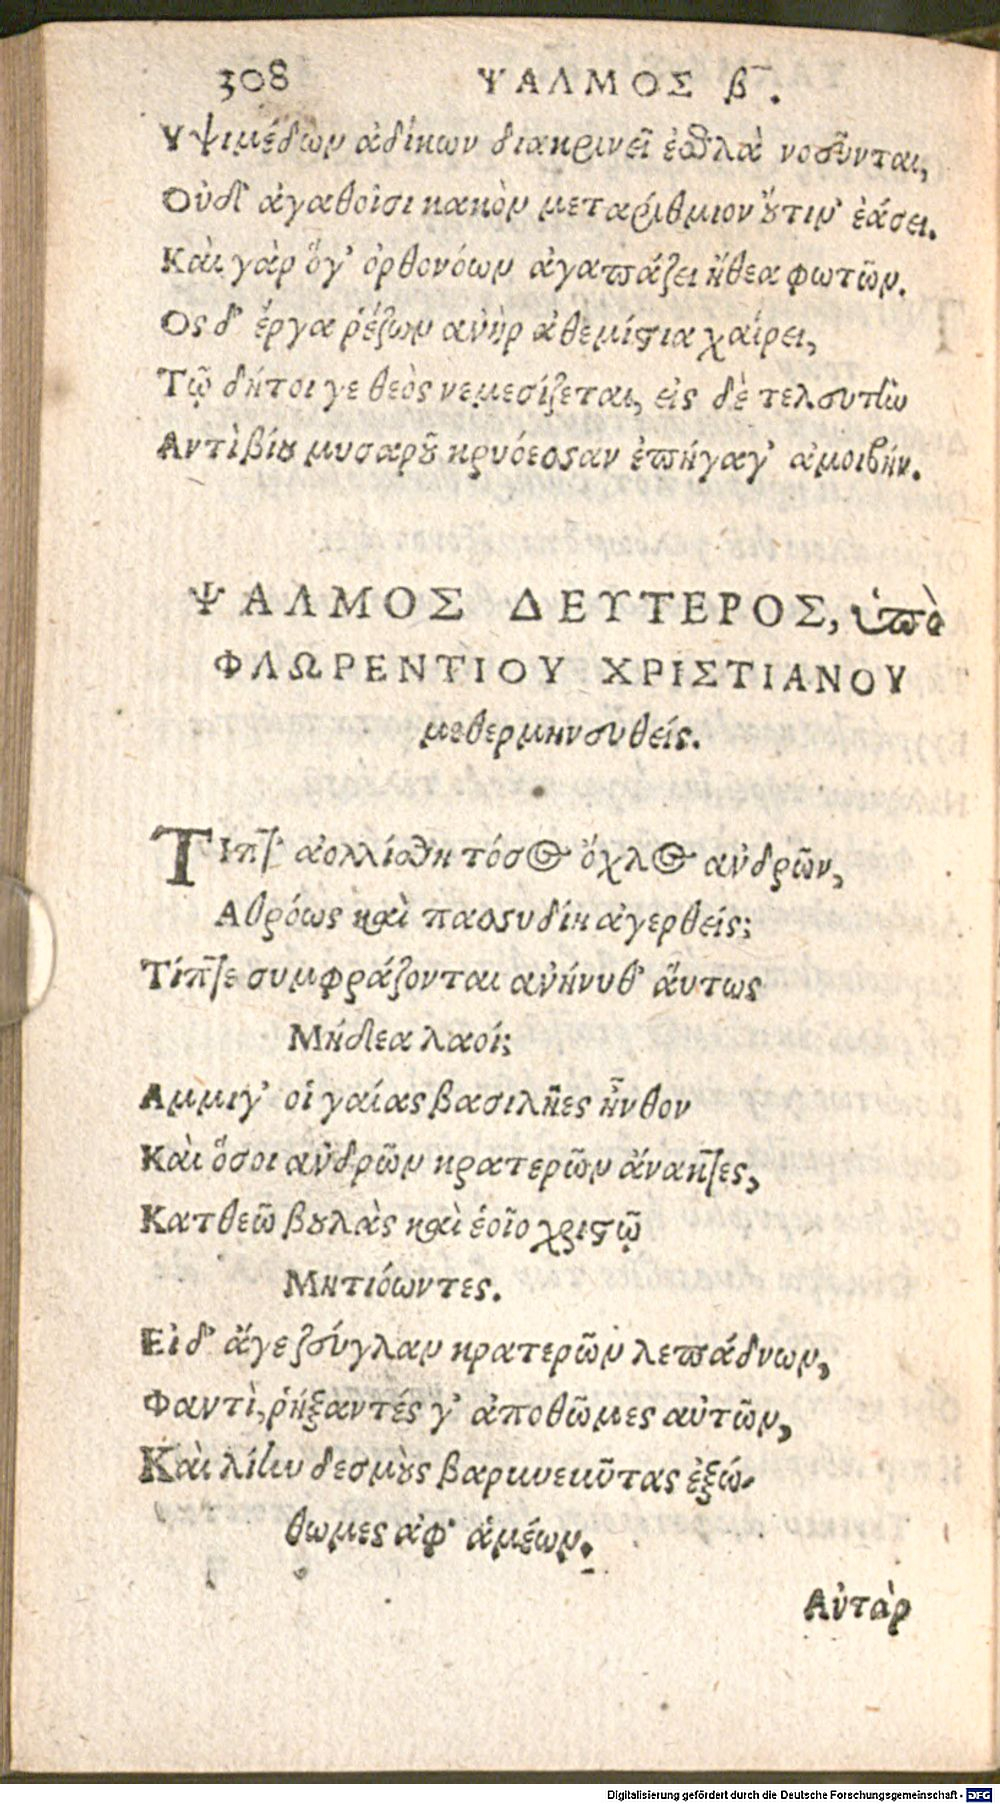 308 ΨΑΛΜΟΣ β̅.
Υψιμέδων ἀδίκων διακρινεῖ ἐσθλὰ νοοῦνται,
Οὐδ' ἀγαθοῖσι κακὸν μεταρίθμιον οὔτιν' ἐάσει.
Καὶ γὰρ ὅγ' ὀρθονόων ἀγαπάζει ἤθεα φωτῶν.
Ος δ' ἔργα ῥέζων ἀνὴρ ἀθεμίστια χαίρει,
Τῷ δήτοι γε θεὸς νεμεσίζεται, εἰς δὲ τελευτὴν
Αντὶ βίου μυσαροῦ κρυόεσσαν ἐπήγαγ' ἀμοιβήν.
ΨΑΛΜΟΣ ΔΕΥΤΕΡΟΣ, ὑπὸ
ΦΛΩΡΕΝΤΙΟΥ ΧΡΙΣΤΙΑΝΟΥ
μεθερμηνευθείς.
ΤΙπτ' ἀολλίσθη τόσος ὄχλος ἀνδρῶν,
Αθρόως καὶ πασσυδίη ἀγερθείς;
Τίπτε συμφράζονται ἀνήνυθ' ἄυτως
Μήδεα λαοί;
Αμμιγ' οἱ γαίας βασιλῆες ἦνθον
Καὶ ὅσοι ἀνδρῶν κρατερῶν ἄνακτες,
Κατθεῶ βουλὰς καὶ ἑοῖο χριστῷ
Μητιόωντες.
Εἰ δ' ἄγε ζεύγλαν κρατερῶν λεπάδνων,
Φαντὶ, ῥήξαντές γ' ἀποθῶμες αὐτῶν,
Καὶ λίην δεσμοὺς βαρκυεκῦτας ἐξώ-
θωμες ἀφ' ἁμέων.
Αὐτὰρ
Digitalisierung gefördert durch die Deutsche Forschungsgemeinschaft - DFG